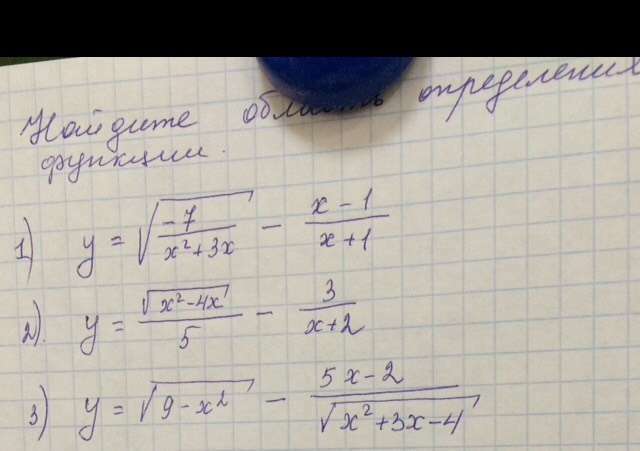 Найдите область определения
функции.
1) y = √(-7/(x²+3x)) - (x-1)/(x+1)
2). y = √(x²-4x)/5 - 3/(x+2)
3) y = √(9-x²) - (5x-2)/√(x²+3x-4)